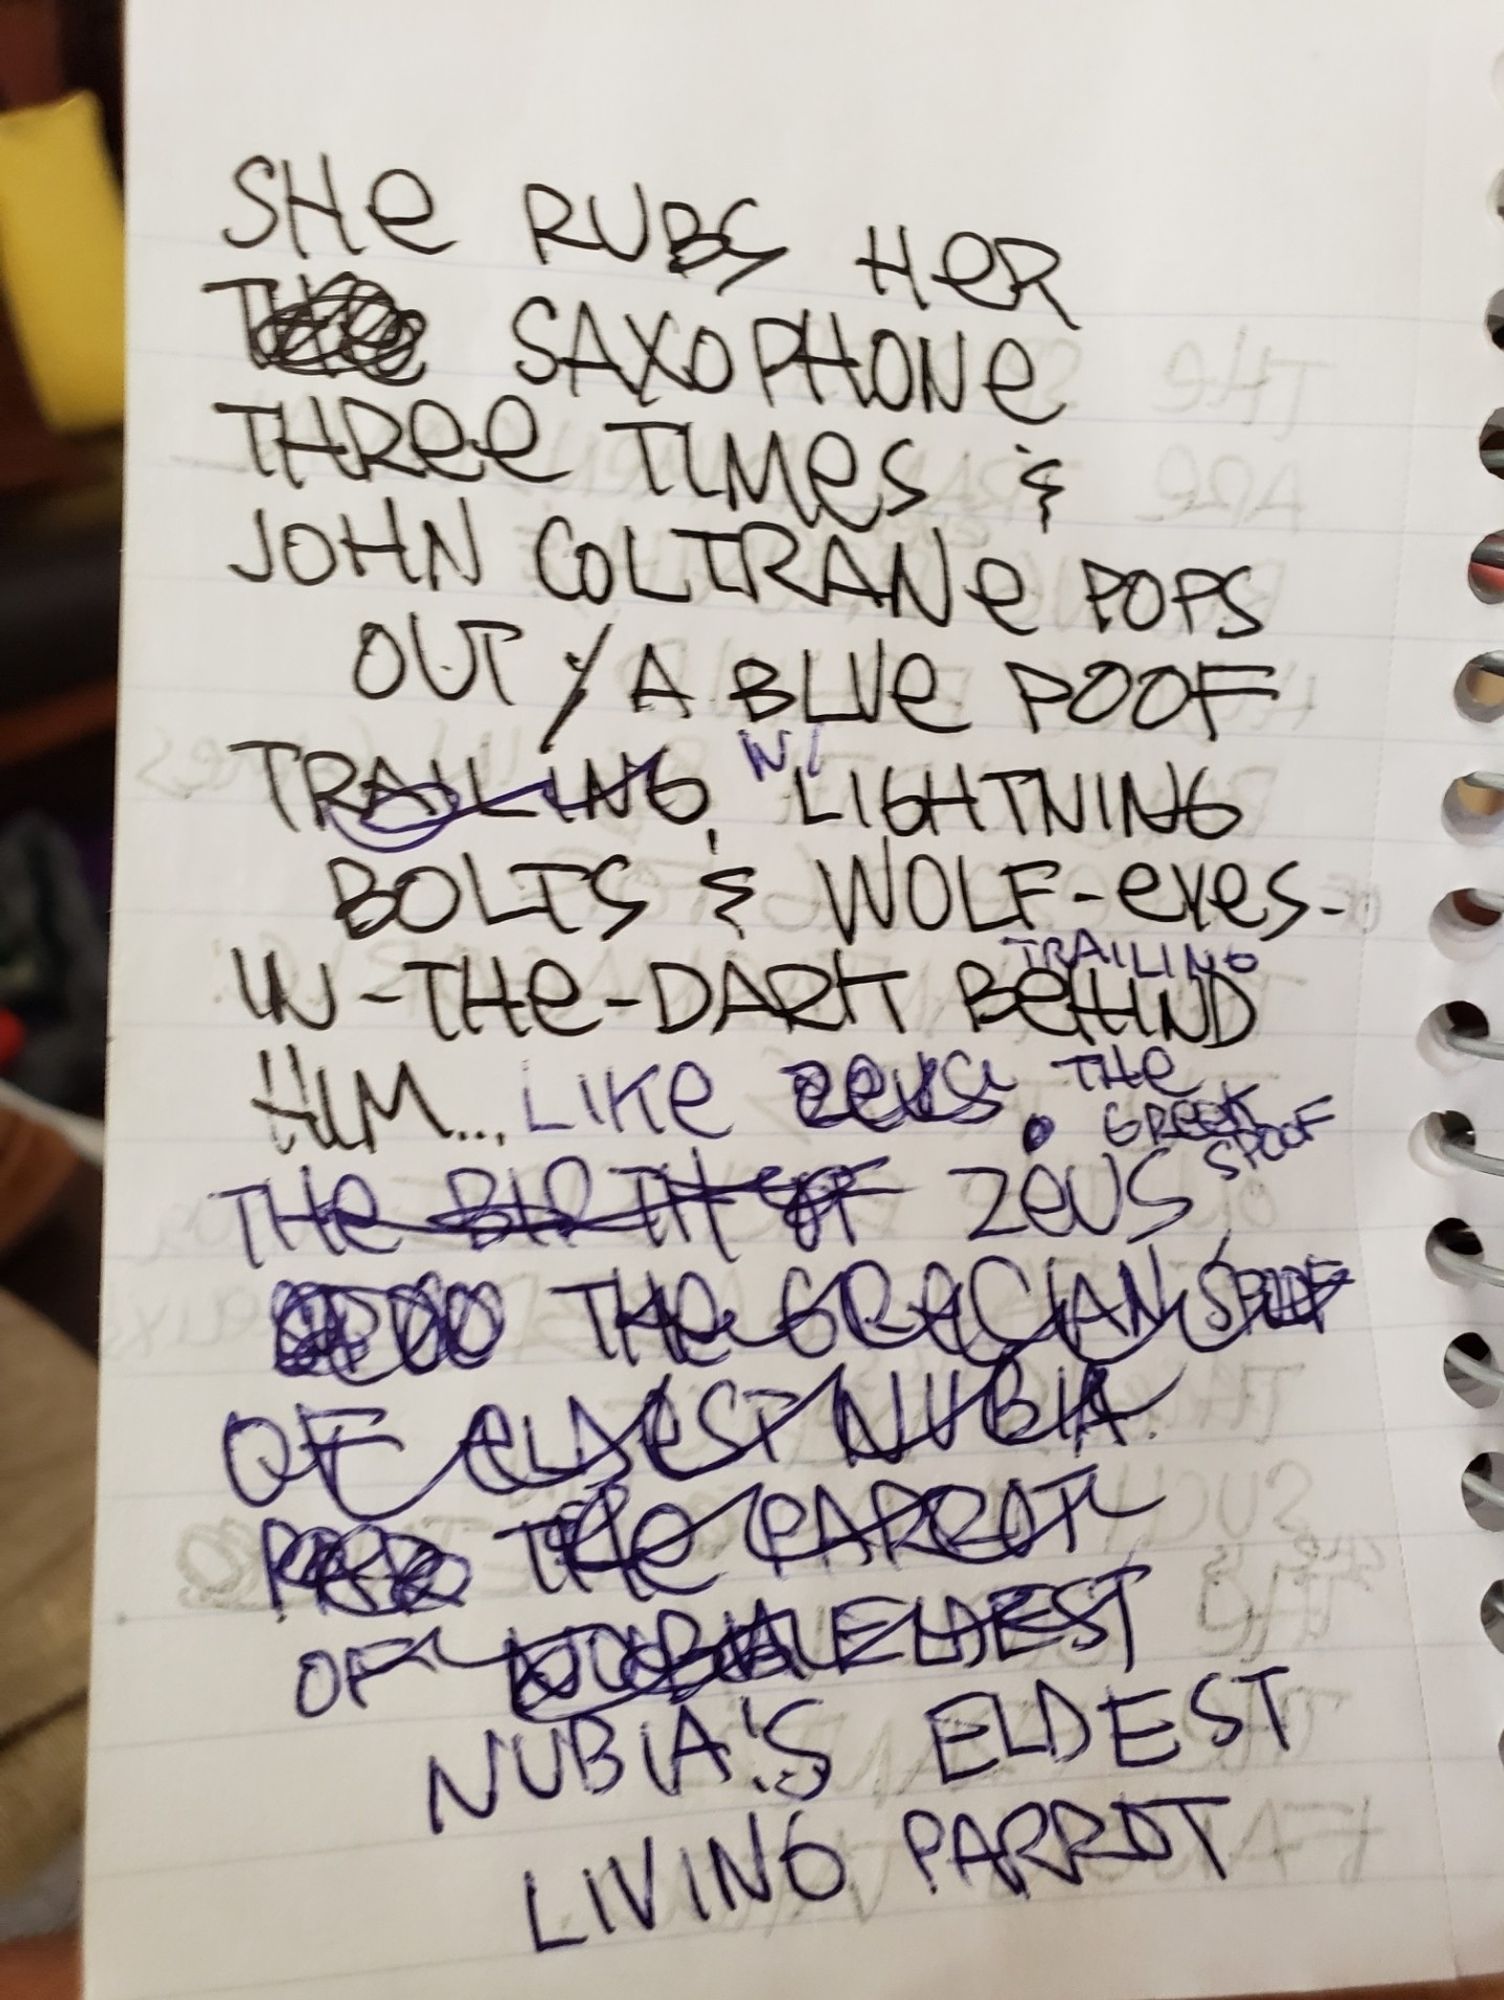 SHe RUBS HeR
THe SAXOPHONe
THRee TIMeS &
JOHN COLTRANe POPS
OUT / A BLUe POOF
TRAILING, W/ LIGHTNING
BOLTS & WOLF-eyes-
IN-THe-DARK BeHIND
TRAILING
HIM... LIKe Zeus. THe
GREEK
SPOOF
THe BIRTH OF ZeUS
THe GReCIAN SPOOF
OF eLDeST NUBIA
THe PARROT
OF NUBIA ELDEST
NUBIA'S ELDEST
LIVING PARROT